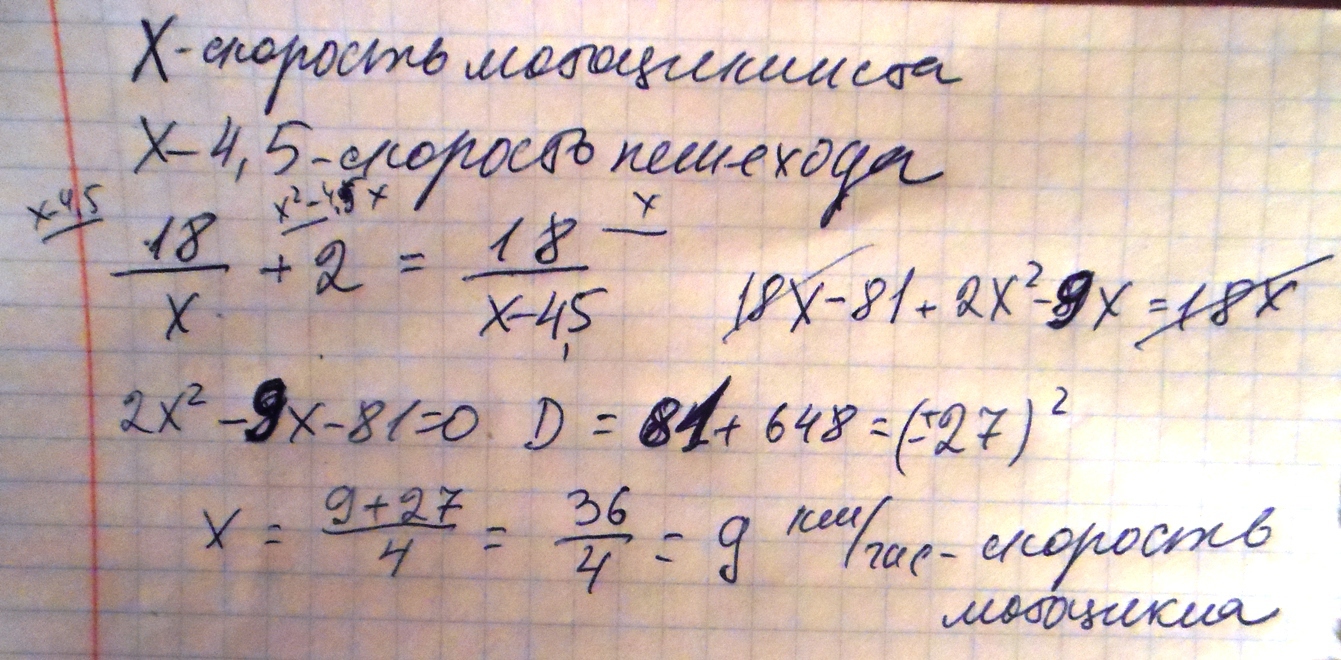 X - скорость мотоциклиста
X - 4,5 - скорость пешехода
x-4,5 x²-4,5x x
18/x + 2 = 18/(x-4,5)
18x - 81 + 2x² - 9x = 18x
2x² - 9x - 81 = 0. D = 81 + 648 = (±27)²
x = (9+27)/4 = 36/4 = 9 км/час - скорость
мотоцикла